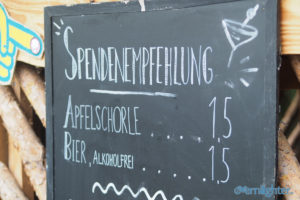 SPENDENEMPFEHLUNG
APFELSCHORLE ..... 1,5
BIER, ALKOHOLFREI .... 1,5
overnighter